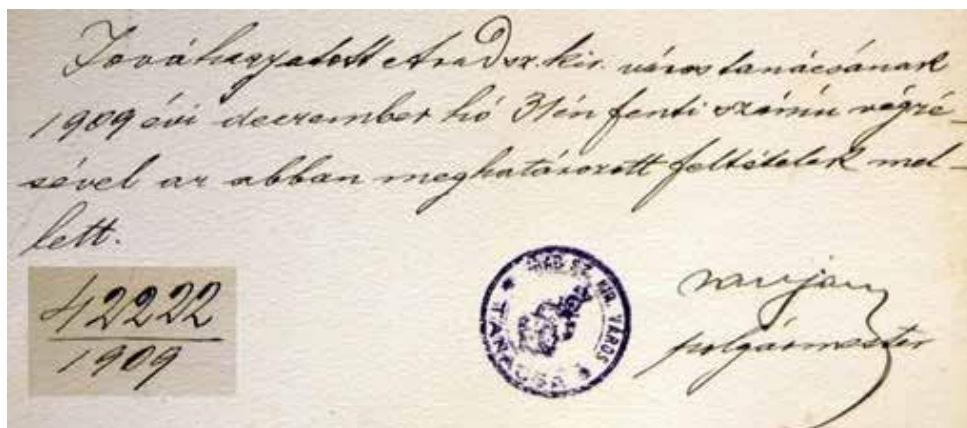 Jováhagyatott Arad sz. kir. város tanácsának
1909 évi deczember hó 31én fenti számú végzé-
sével az abban meghatározott feltételek mel-
lett.
42222
1909
ARAD SZ. KIR. VÁROS * TANÁCSA *
polgármester